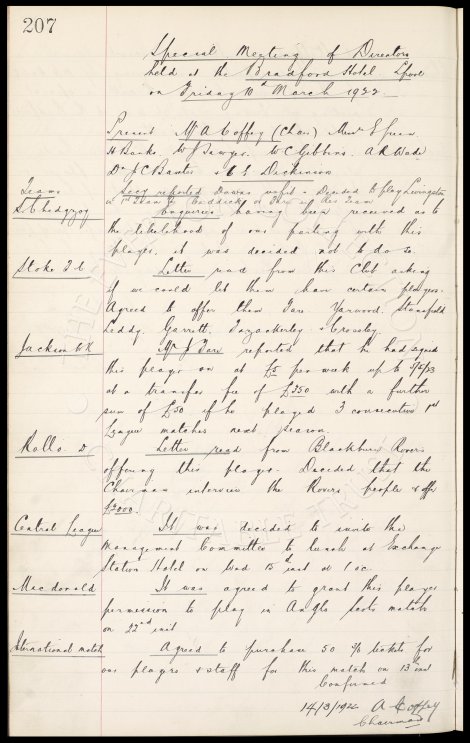 207
Special Meeting of Directors
held at the Bradford Hotel L'pool
on Friday 10th March 1922
Present Mr A Coffey (Chair) Messrs E Green
H Banks. W J Sawyer. W C Gibbins. A R Wade
Dr J C Baxter & E Dickinson
Teams Secy reported Downs unfit & Decided to play Livingstone
in 1st Team & Caddick or Parr in Res Team
S Chedgzoy Enquiries having been received as to
the likelihood of our parting with this
player, it was decided not to do so
Stoke F.C Letter read from this Club asking
if we could let them have certain players.
Agreed to offer them Fare. Yarwood. Stansfield
Leddy. Garrett. Fazackerley & Crossley.
Jackson Mr J Fare reported that he had signed
this player on at £5 per week up to 5/5/23
at a transfer fee of £350 with a further
sum of £50 if he played 3 consecutive 1st
League matches next season.
Rollo. D Letter read from Blackburn Rovers
offering this player. Decided that the
Chairman interview the Rovers people & offer
£2000.
Central League It was decided to invite the
Management Committee to lunch at Exchange
Station Hotel on Wed 15th inst at 1 oc.
Macdonald It was agreed to grant this player
permission to play in Anglo Scots match
on 22nd inst
International match Agreed to purchase 50 tickets for
our players & staff for this match on 13th inst
Confirmed
14/3/1922 A Coffey
Chairman